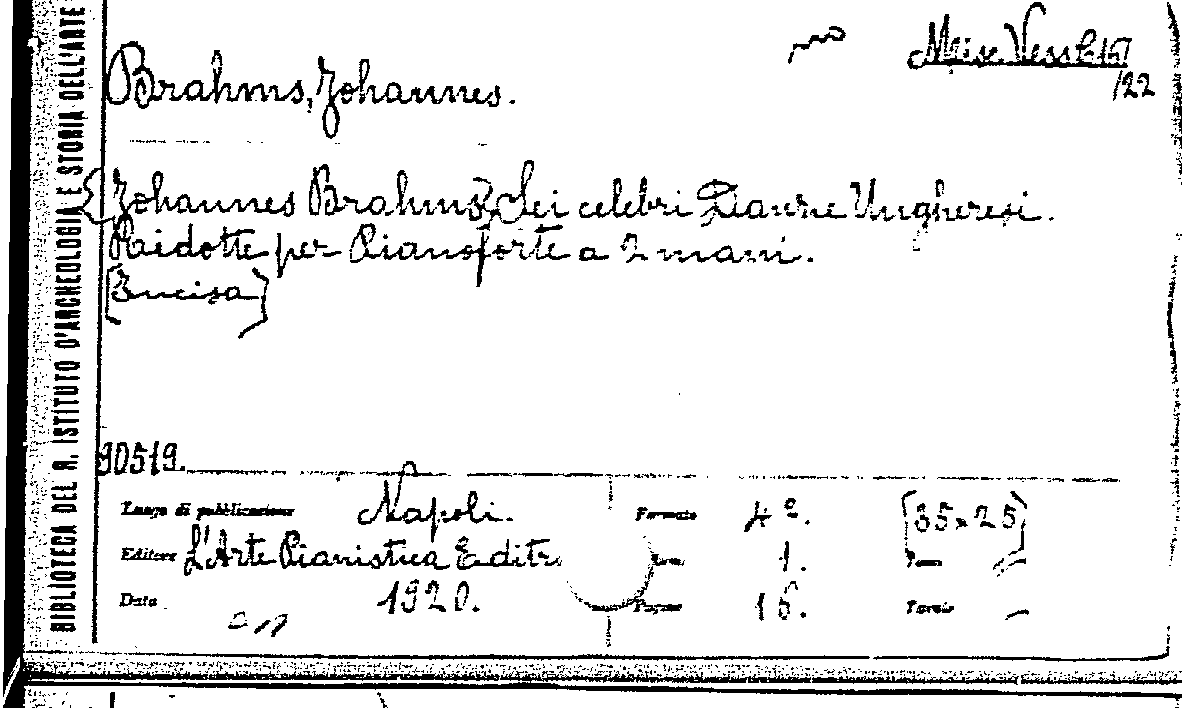 BIBLIOTECA DEL R. ISTITUTO D'ARCHEOLOGIA E STORIA DELL'ARTE
Misc. Vess. C 157
/22
Brahms, Johannes.
[Johannes Brahms] Sei celebri Danze Ungheresi.
Ridotte per Pianoforte a 2 mani.
[Incisa]
90519.
Luogo di pubblicazione Napoli. Formato 4º. [35×25]
Editore L'Arte Pianistica Editr. 1.
Data 1920. Pagine 16. Tavole –